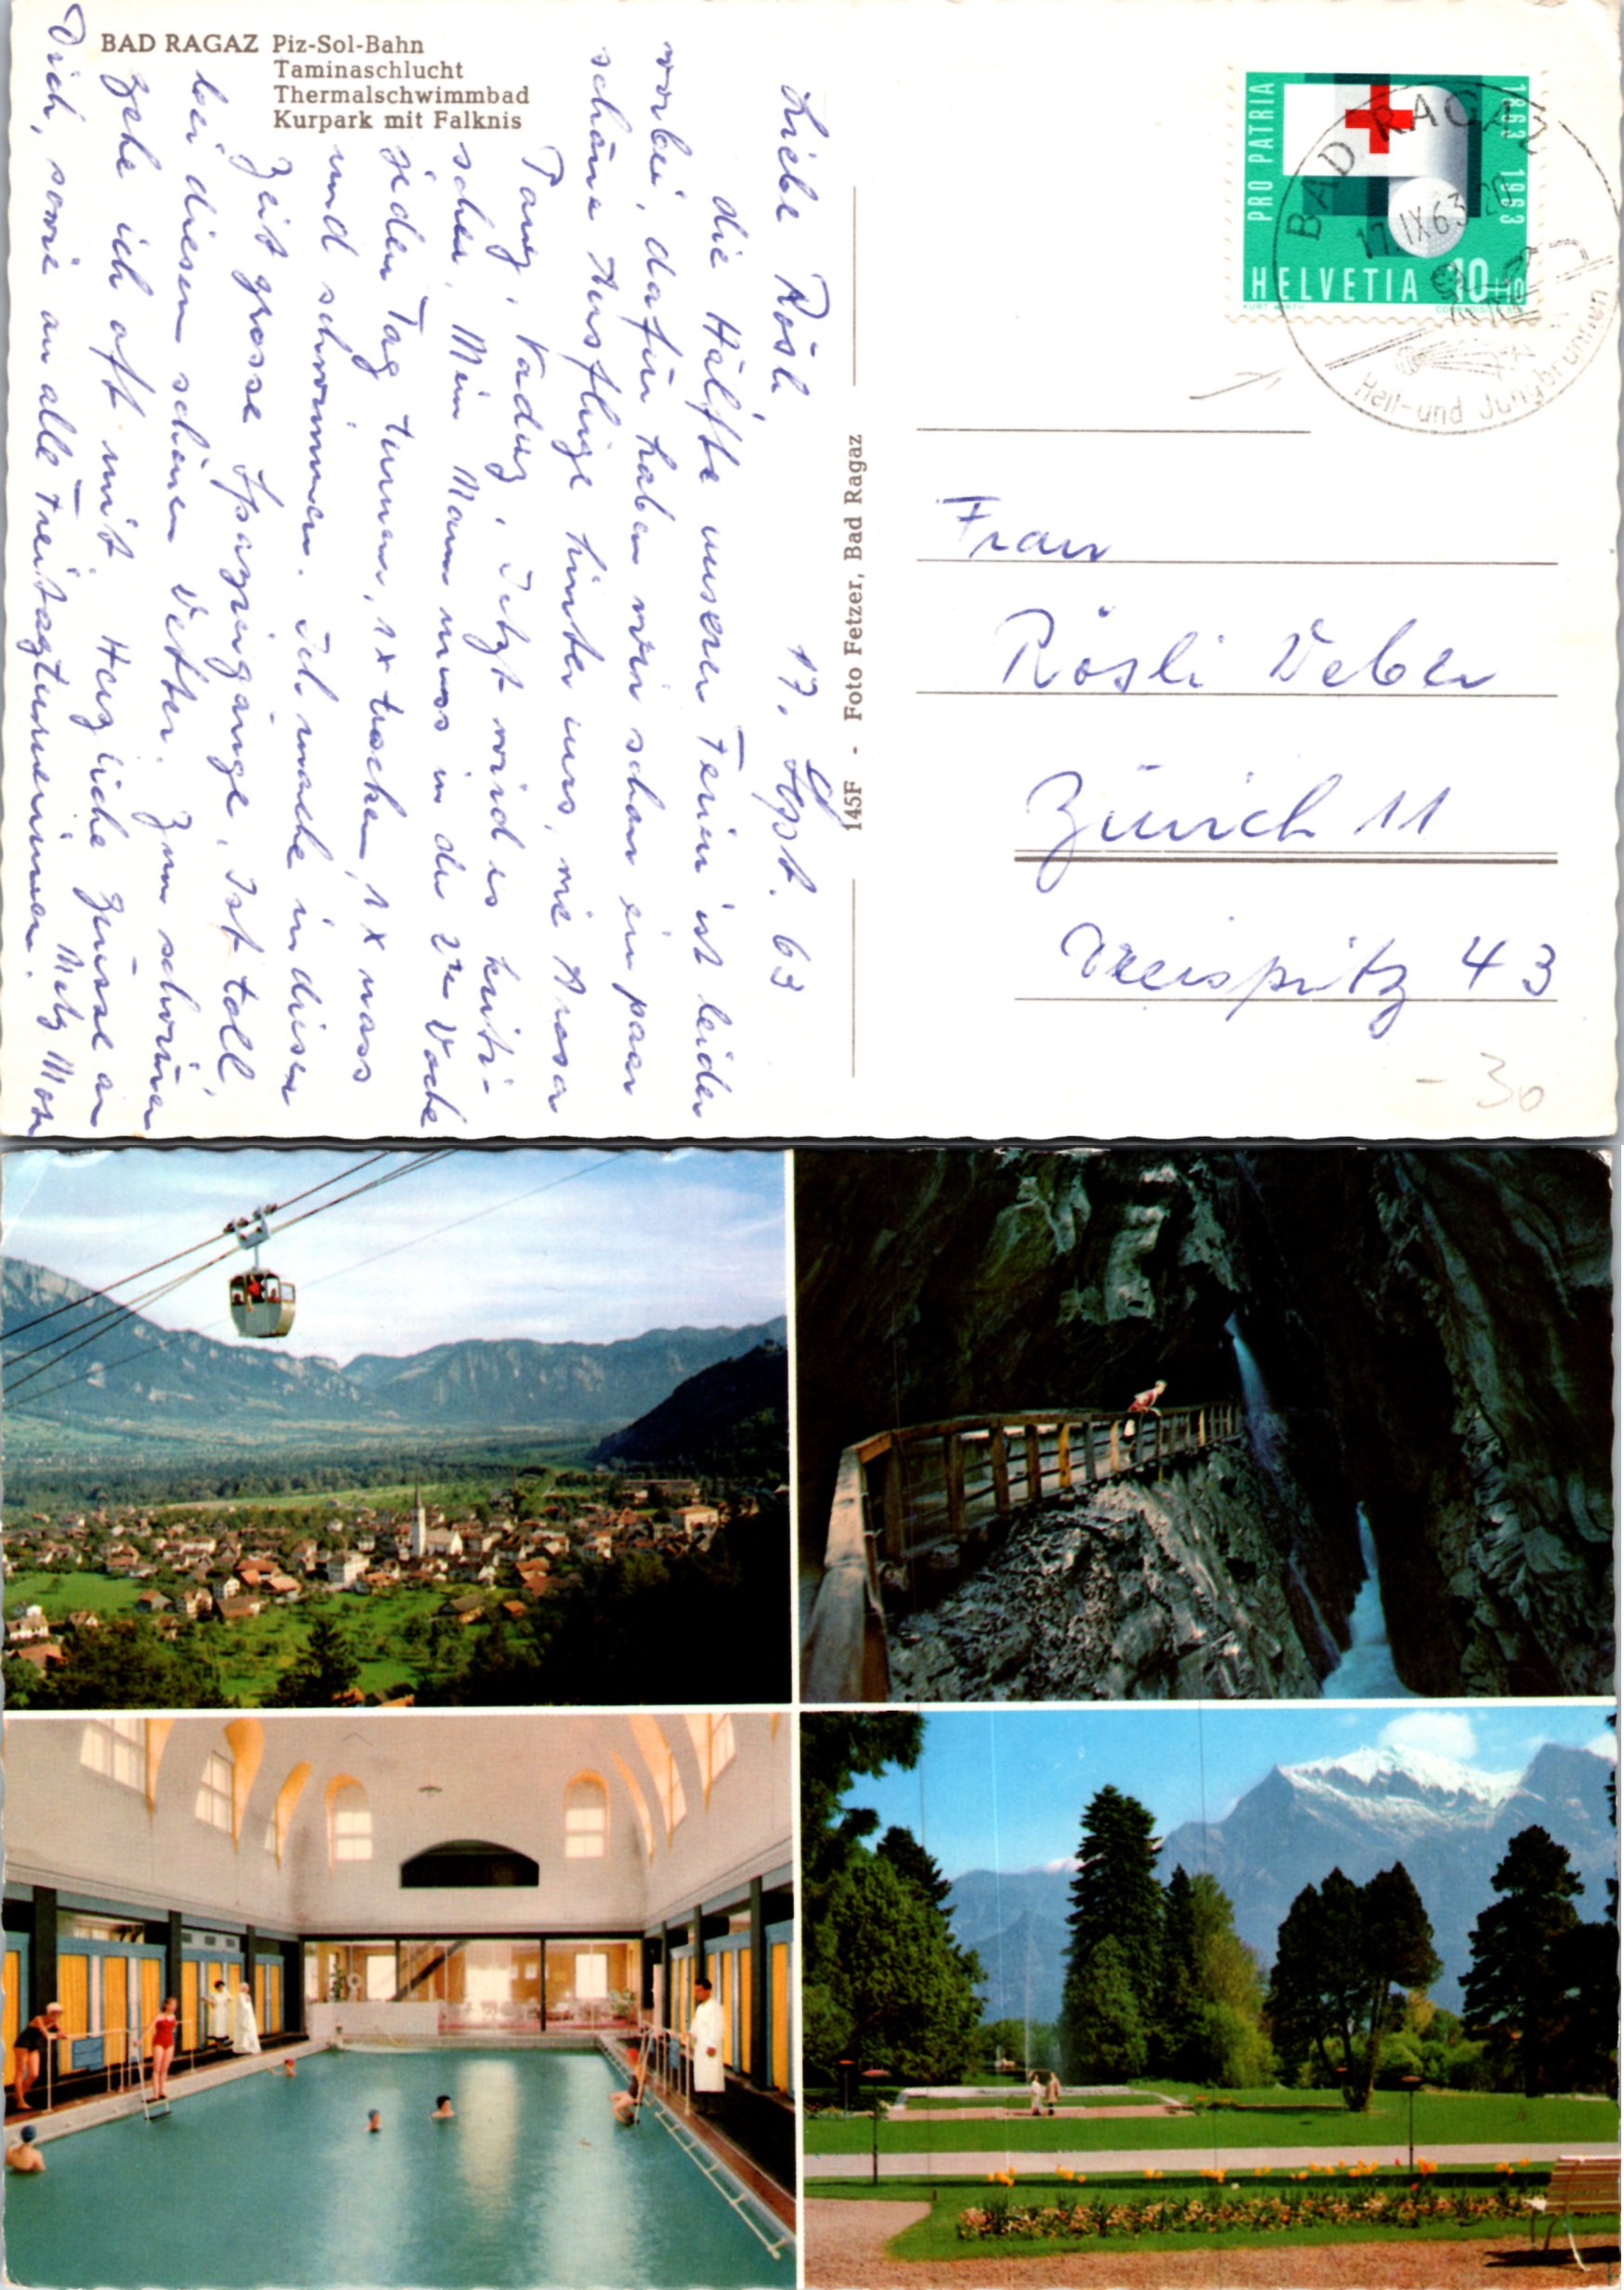 BAD RAGAZ Piz-Sol-Bahn
Taminaschlucht
Thermalschwimmbad
Kurpark mit Falknis
17. Sept. 63
Liebe Rösli,
die Hälfte unserer Ferien ist leider
vorbei, dafür haben wir schon ein paar
schöne Ausflüge hinter uns, wie Arosa
Vaduz. Jetzt wird es kriti-
scher. Mein Mann muss in der 2ten Woche
jeden Tag turnen, 1x trocken, 1x nass
und schwimmen. Ich mache in dieser
Zeit grosse Spaziergänge. Ist toll
bei diesem schönen Wetter. Zum schwimmen
gehe ich oft mit. Herzliche Grüsse an
Dich, sowie an alle Freitagturnerinnen.
145F - Foto Fetzer, Bad Ragaz
PRO PATRIA
1863 1963
HELVETIA 10+10
KURT WIRTH
COURVOISIER S.A.
BAD RAGAZ
17.IX.63-20
Heil-und Jungbrunnen
Frau
Rösli Weber
Zürich 11
43
-30